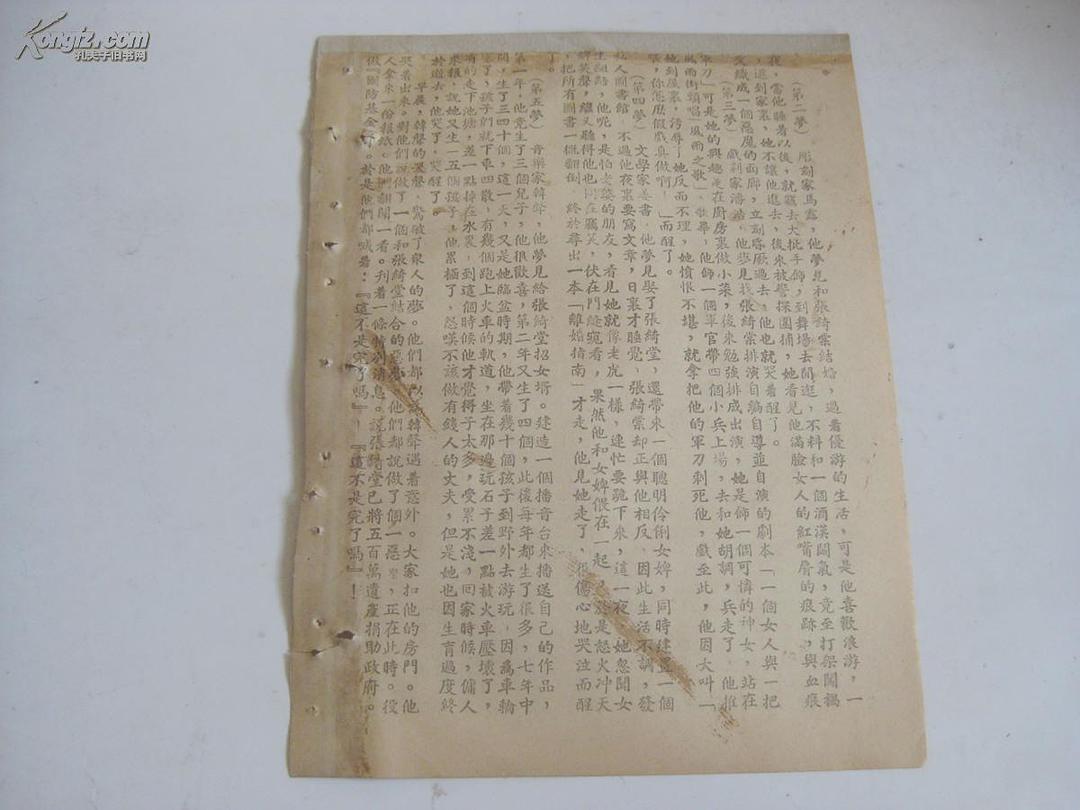 Kongfz.com
孔夫子旧书网
（第二夢）彫刻家馬露，他夢見和張綺棠結婚，過着優游的生活，可是他喜歡浪游，一
夜，當他睡着以後，就竊去大批手飾，到舞場去閒逛，不料和一個酒漢鬭氣，竟至打架闖禍
，逃到家裏，他不讓他進去，後來被警探圍捕，她看見他滿臉女人的紅嘴唇的痕跡，與血痕
交織成一個惡魔的面廓，立刻昏厥過去，他也就哭着醒了。
（第三夢）戲劇家潘，他夢見找張綺棠排演自編自導並自演的劇本「一個女人與一把
軍刀」可是她的興趣是在廚房裏做小菜，後來勉強排成出演，她是飾一個可憐的神女，站在
風雨街頭唱「風雨之歌」，歌畢，他飾一個軍官帶四個小兵上場，去和她胡調，兵走了，他推
她到屋裏，污辱了她反而不理，她憤恨不堪，就拿把他的軍刀刺死他，戲至此，他因大叫「
，你怎麼假戲真做啊！」而醒了。
（第四夢）文學家姜書，他夢見娶了張綺堂，還帶來一個聰明伶俐女婢，同時建置一個
私人圖書館，不過他夜裏要寫文章，日裏才睡覺，張綺棠却正與他相反，因此生活不調，發
生齟齬，他呢，是怕老婆的朋友，看見她就像老虎一樣，連忙要跪下來，這一夜，她忽聞女
婢笑聲，繼又聽得他也同在竊笑，伏在門縫窺看，果然他和女婢偎在一起，於是怒火冲天
，把所有圖書一概翻倒，終於尋出一本「離婚指南」才走，他見她走了，很傷心地哭泣而醒
了。
（第五夢）音樂家韓聲，他夢見給張綺堂招女壻。建造一個播音台來播送自己的作品，
第一年，他竟生了三個兒子，他很歡喜，第二年又生了四個，此後每年都生了很多，七年中
間，生了三四十個，這一天，又是她臨盆時期，他帶着幾十個孩子到野外去游玩，因為車輪
壞了，孩子們就下車四散，有幾個跑上火車的軌道，坐在那邊玩石子差一點被火車壓壞了，
有的走下池塘，差一點掉在水裏，到這個時候他才覺得子太多，受累不淺，回家時候，傭人
來報，說她又生一五個孩子，他累極了，怨嘆不該做有錢人的丈夫，但是她也因生育過度終
於逝去，他哭了，哭醒了。
早晨，韓聲的哭聲，驚破了衆人的夢。他們都以為韓聲遇着意外。大家扣他的房門。他
哭着出來。對他們說做了一個和張綺堂結合的惡夢，他們都說做了個一惡，正在此時。役
人拿來一份報紙。他們翻開一看。刋着一條特別消息。說張綺堂已將五百萬遺產捐助政府。
做國防基金。於是他們都喊着：『這不是完了嗎』！『這不是完了嗎』！